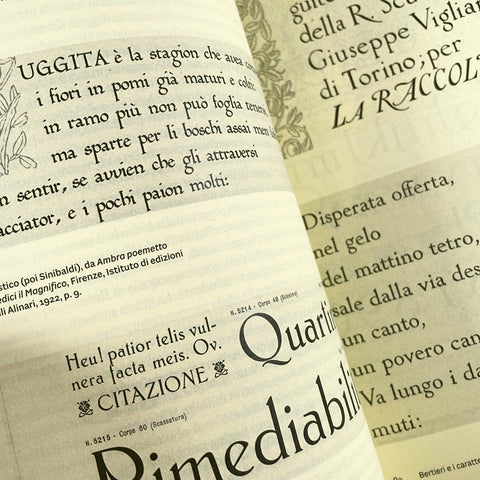 UGGITA è la stagion che avea
i fiori in pomi già maturi e colti:
in ramo più non può foglia
ma sparte per li boschi assai men
sentir, se avvien che gli attraversi
cacciator, e i pochi paion molti:
(poi Sinibaldi), da Ambra poemetto
il Magnifico, Firenze, Istituto di edizioni
Alinari, 1922, p. 9.
N. 5214 - Corpo 48
Heu! patior telis vul-
nera facta meis. Ov.
CITAZIONE
N. 5215 - Corpo 60 (Scassatura)
della R
Giuseppe
di Torino; per
LA
Disperata offerta,
nel gelo
del mattino tetro,
sale dalla via
un canto,
un povero
Va lungo i
muti:
Bertieri e i